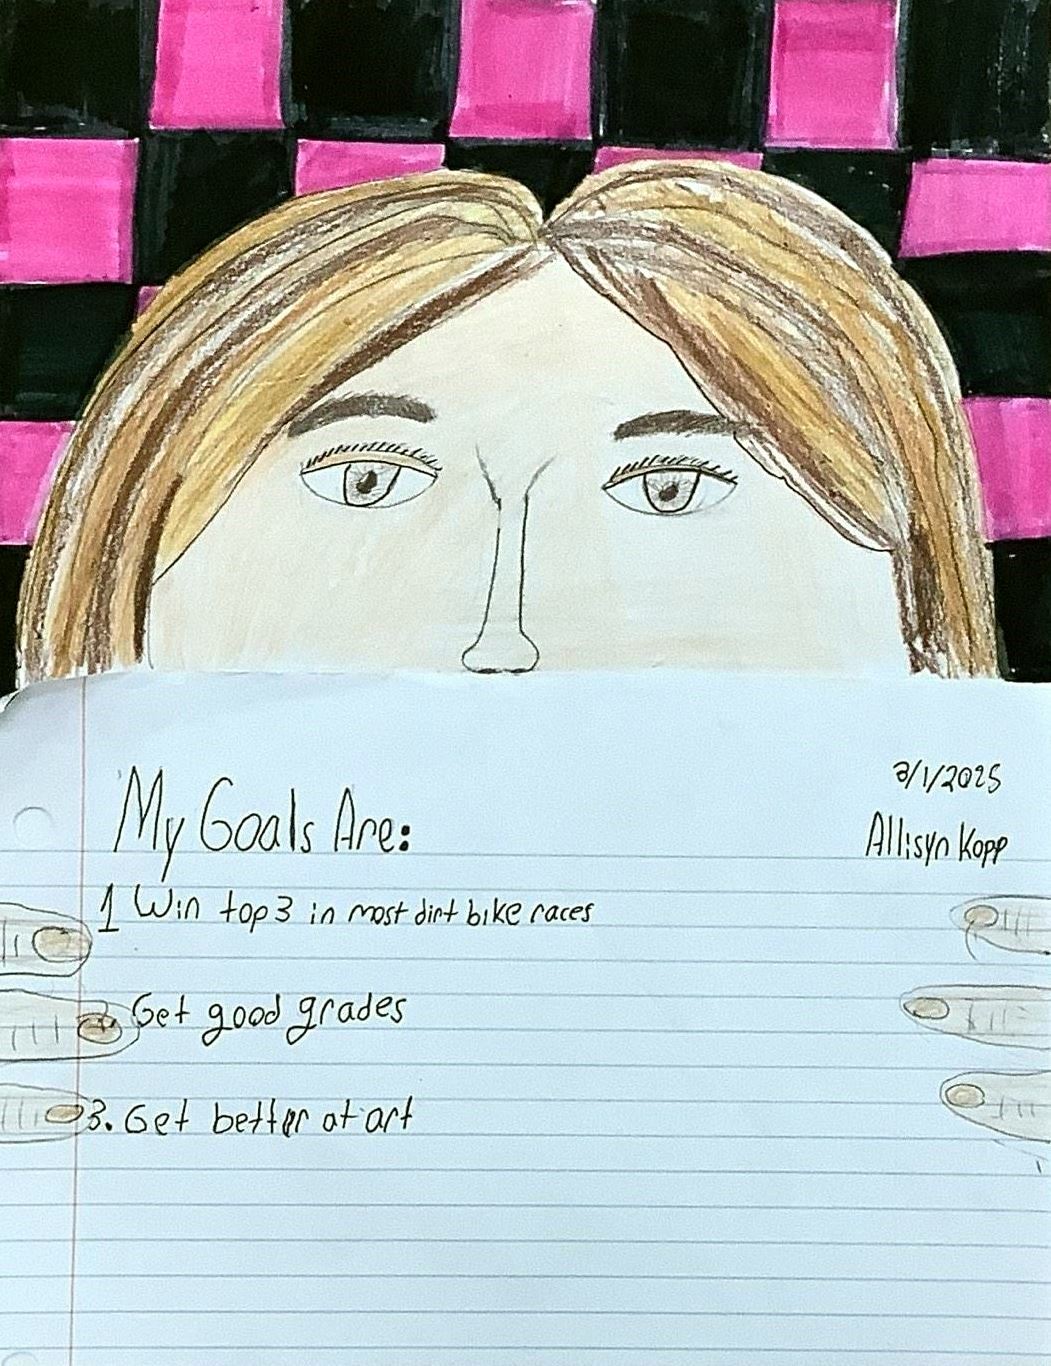 3/1/2025
My Goals Are:
Allisyn Kopp
1 Win top 3 in most dirt bike races
2. Get good grades
3. Get better at art